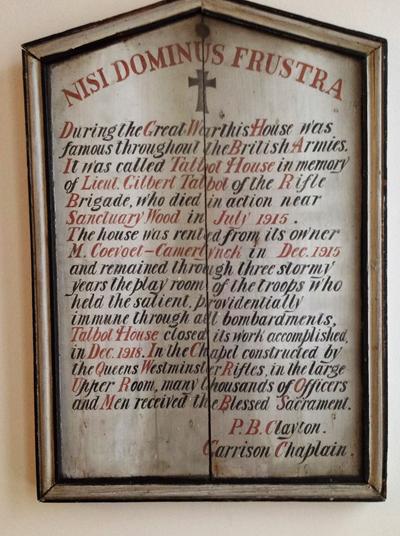 NISI DOMINUS FRUSTRA
During the Great War this House was
famous throughout the British Armies.
It was called Talbot House in memory
of Lieut. Gilbert Talbot of the Rifle
Brigade, who died in action near
Sanctuary Wood in July 1915.
The house was rented from its owner
M. Coevoet-Camerlynck in Dec. 1915
and remained through three stormy
years the play room of the troops who
held the salient, providentially
immune through all bombardments.
Talbot House closed its work accomplished,
in Dec. 1918. In the Chapel constructed by
the Queens Westminster Rifles, in the large
Upper Room, many thousands of Officers
and Men received the Blessed Sacrament.
P.B. Clayton.
Garrison Chaplain.